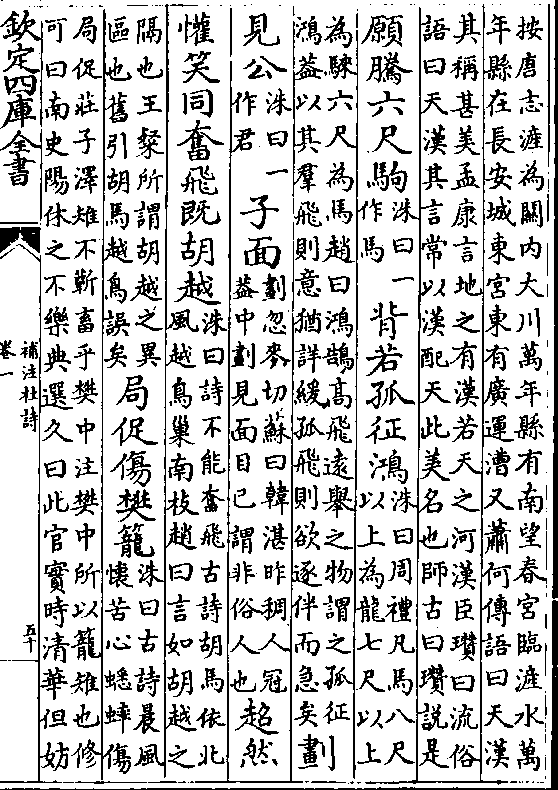 按唐志滻為關内大川萬年縣有南望春宮臨滻水萬
年縣在長安城東宮東有廣運漕又蕭何傳語曰天漢
其稱甚美孟康言地之有漢若天之河漢臣瓚曰流俗
語曰天漢其言常以漢配天此美名也師古曰瓚說是
願騰六尺駒洙曰一作馬背若孤征鴻洙曰周禮凡馬八尺以上為龍七尺以上
為騋六尺為馬趙曰鴻鵠髙飛逺舉之物謂之孤征
鴻葢以其羣飛則意猶詳緩孤飛則欲逐伴而急矣劃
見公洙曰一作君子面劃忽麥切蘇曰韓湛昨稠人冠葢中劃見面目已謂非俗人也超然
懽笑同奮飛既胡越洙曰詩不能奮飛古詩胡馬依北風越鳥巢南枝趙曰言如胡越之
隅也王粲所謂胡越之異區也舊引胡馬越鳥誤矣局促傷樊籠洙曰古詩晨風懷苦心蟋蟀傷
局促莊子澤雉不靳畜乎樊中注樊中所以籠雉也修
可曰南史陽休之不樂典選久曰此官實時清華但妨
欽定四庫全書
補注杜詩
卷一
五十